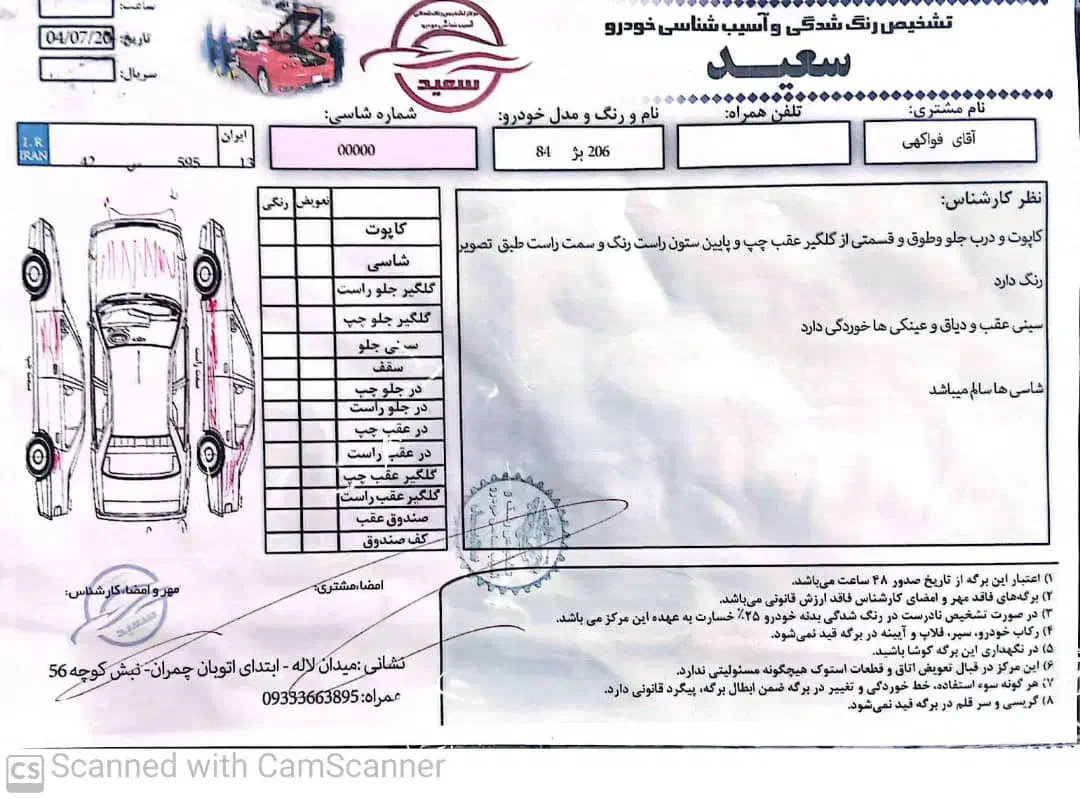 تشخیص رنگ شدگی و آسیب شناسی خودرو
سعید
ساعت:
تاریخ: 04/07/20
سریال:
سعید
نام مشتری:
آقای فواکهی
تلفن همراه:
نام و رنگ و مدل خودرو:
206 بژ 84
شماره شاسی:
00000
ایران
13
595 س 42
I.R
IRAN
نظر کارشناس:
کاپوت و درب جلو وطوق و قسمتی از گلگیر عقب چپ و پایین ستون راست رنگ و سمت راست طبق تصویر
رنگ دارد
سینی عقب و دیاق و عینکی ها خوردگی دارد
شاسی ها سالم میباشد
تعویض رنگی
کاپوت
شاسی
گلگیر جلو راست
گلگیر جلو چپ
سینی جلو
سقف
در جلو چپ
در جلو راست
در عقب چپ
در عقب راست
گلگیر عقب چپ
گلگیر عقب راست
صندوق عقب
کف صندوق
سمت راست
امضاء مشتری:
مهر و امضاء کارشناس:
سعید
نشانی :میدان لاله - ابتدای اتوبان چمران- نبش کوچه 56
همراه: 09333663895
۱) اعتبار این برگه از تاریخ صدور ۴۸ ساعت می‌باشد.
۲) برگه‌های فاقد مهر و امضای کارشناس فاقد ارزش قانونی می‌باشد.
۳) در صورت تشخیص نادرست در رنگ شدگی بدنه خودرو ۲۵٪ خسارت به عهده این مرکز می باشد.
۴) رکاب خودرو، سپر، فلاپ و آیینه در برگه قید نمی‌شود.
۵) در نگهداری این برگه کوشا باشید.
۶) این مرکز در قبال تعویض اتاق و قطعات استوک هیچگونه مسئولیتی ندارد.
۷) هر گونه سوء استفاده، خط خوردگی و تغییر در برگه ضمن ابطال برگه، پیگرد قانونی دارد.
۸) گریسی و سر قلم در برگه قید نمی‌شود.
CS Scanned with CamScanner